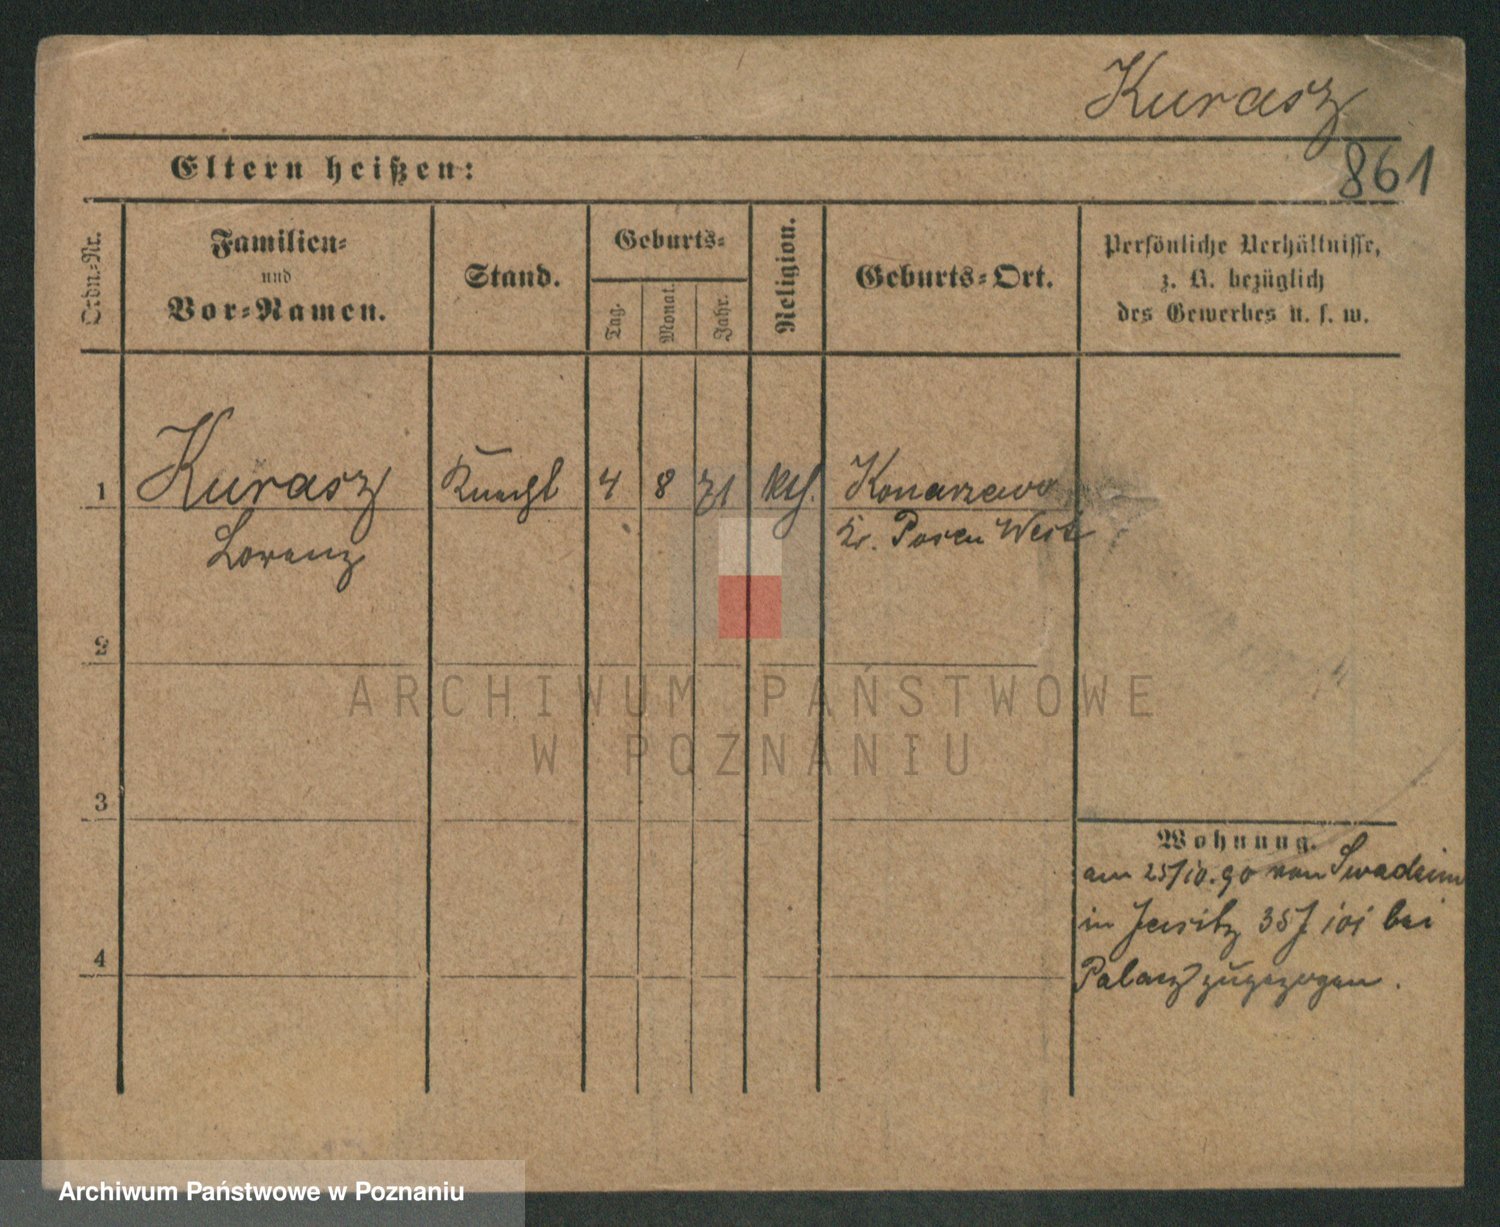 Kurasz
861
Eltern heißen:
Ordn.-Nr.
Familien-
und
Vor-Namen.
Stand.
Geburts-
Tag.
Monat.
Jahr.
Religion.
Geburts-Ort.
Persönliche Verhältnisse,
z. B. bezüglich
des Gewerbes u. s. w.
1 Kurasz Knecht 4 8 71 kth. Konarzewo
Lorenz Kr. Posen West
2
3
4
Wohnung.
am 25/10.90 von Swadzim
in Jersitz 35 bei
Palacz zugezogen.
ARCHIWUM PAŃSTWOWE
W POZNANIU
Archiwum Państwowe w Poznaniu